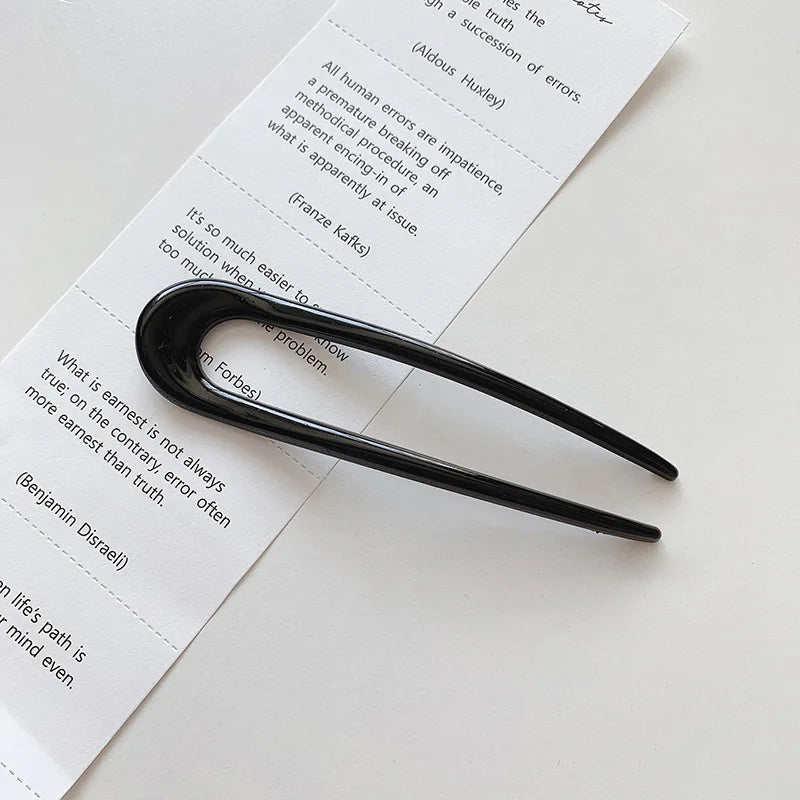 notes
es the
ble truth
gh a succession of errors.
(Aldous Huxley)
All human errors are impatience,
a premature breaking off
methodical procedure, an
apparent encing-in of
what is apparently at issue.
(Franze Kafks)
It's so much easier to s
solution when y know
too muc he problem.
m Forbes)
What is earnest is not always
true; on the contrary, error often
more earnest than truth.
(Benjamin Disraeli)
n life's path is
r mind even.